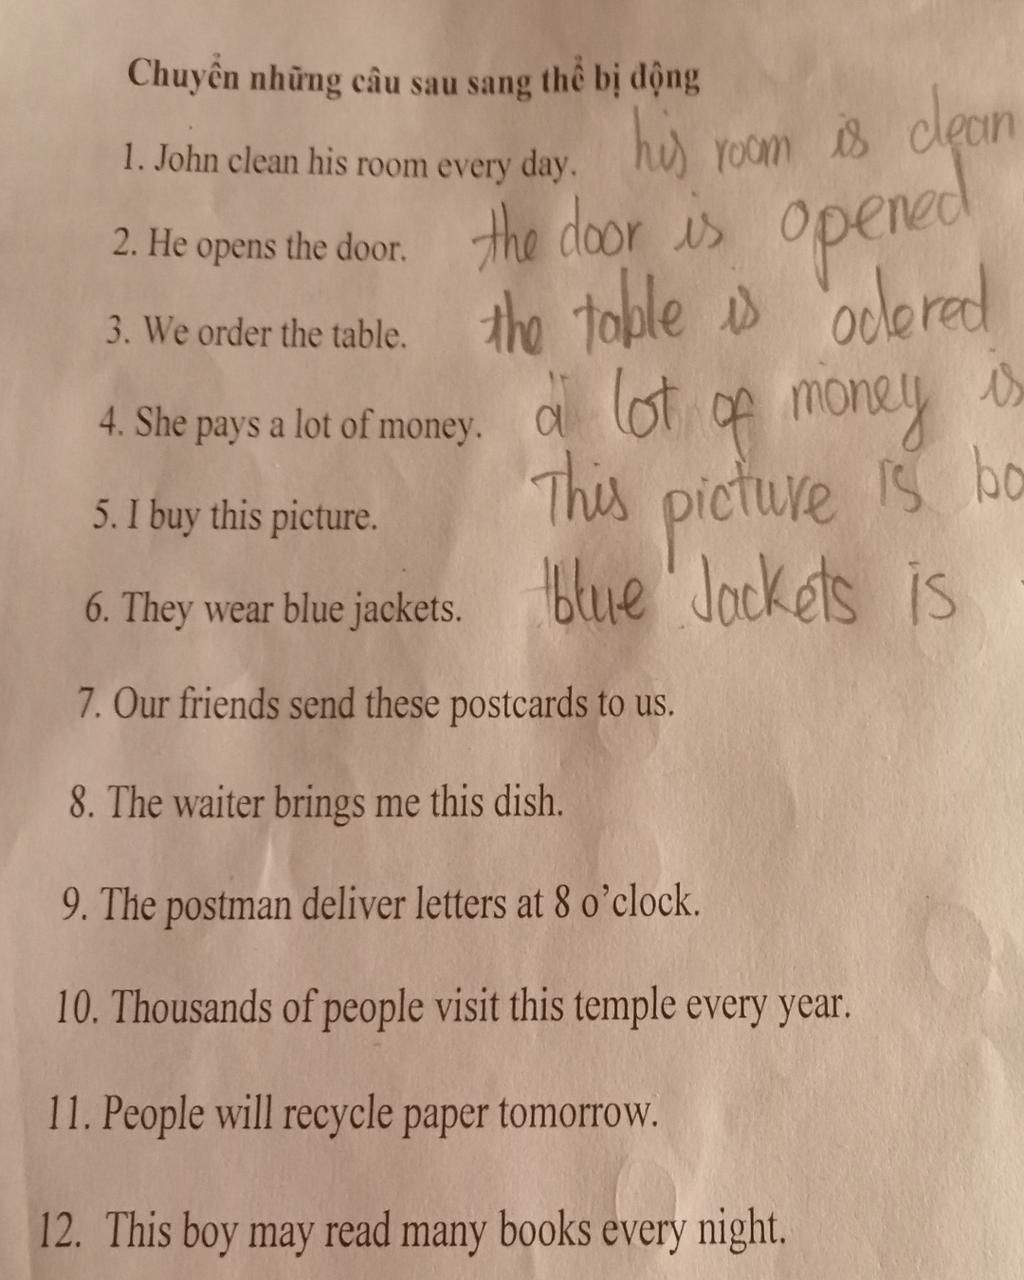 Chuyển những câu sau sang thể bị động
1. John clean his room every day. his room is clean
2. He opens the door. the door is opened
3. We order the table. the table is odered
4. She pays a lot of money. a lot of money is
5. I buy this picture. This picture is bo
6. They wear blue jackets. blue Jackets is
7. Our friends send these postcards to us.
8. The waiter brings me this dish.
9. The postman deliver letters at 8 o'clock.
10. Thousands of people visit this temple every year.
11. People will recycle paper tomorrow.
12. This boy may read many books every night.